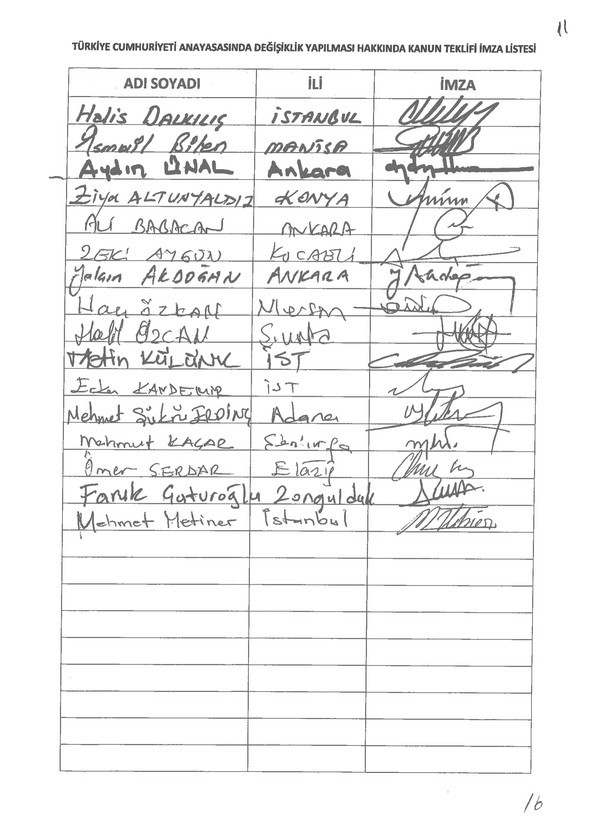 11
TÜRKİYE CUMHURİYETİ ANAYASASINDA DEĞİŞİKLİK YAPILMASI HAKKINDA KANUN TEKLİFİ İMZA LİSTESİ
ADI SOYADI İLİ İMZA
Halis DALKILIÇ İSTANBUL
İsmail Bilen MANİSA
Aydın ÜNAL Ankara
Ziya ALTUNYALDIZ KONYA
ALİ BABACAN ANKARA
ZEKİ AYGÜN KOCAELİ
Yalçın AKDOĞAN ANKARA
Hacı ÖZKAN Mersin
Halil ÖZCAN Ş.urfa
Metin KÜLÜNK İST
KANDEMİR İST
Mehmet Şükrü ERDİNÇ Adana
Mahmut KAÇAR Şanlıurfa
Ömer SERDAR Elazığ
Faruk Çaturoğlu Zonguldak
Mehmet Metiner İstanbul
16